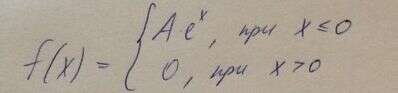 f(x) = { A e^x, при x ≤ 0
0, при x > 0